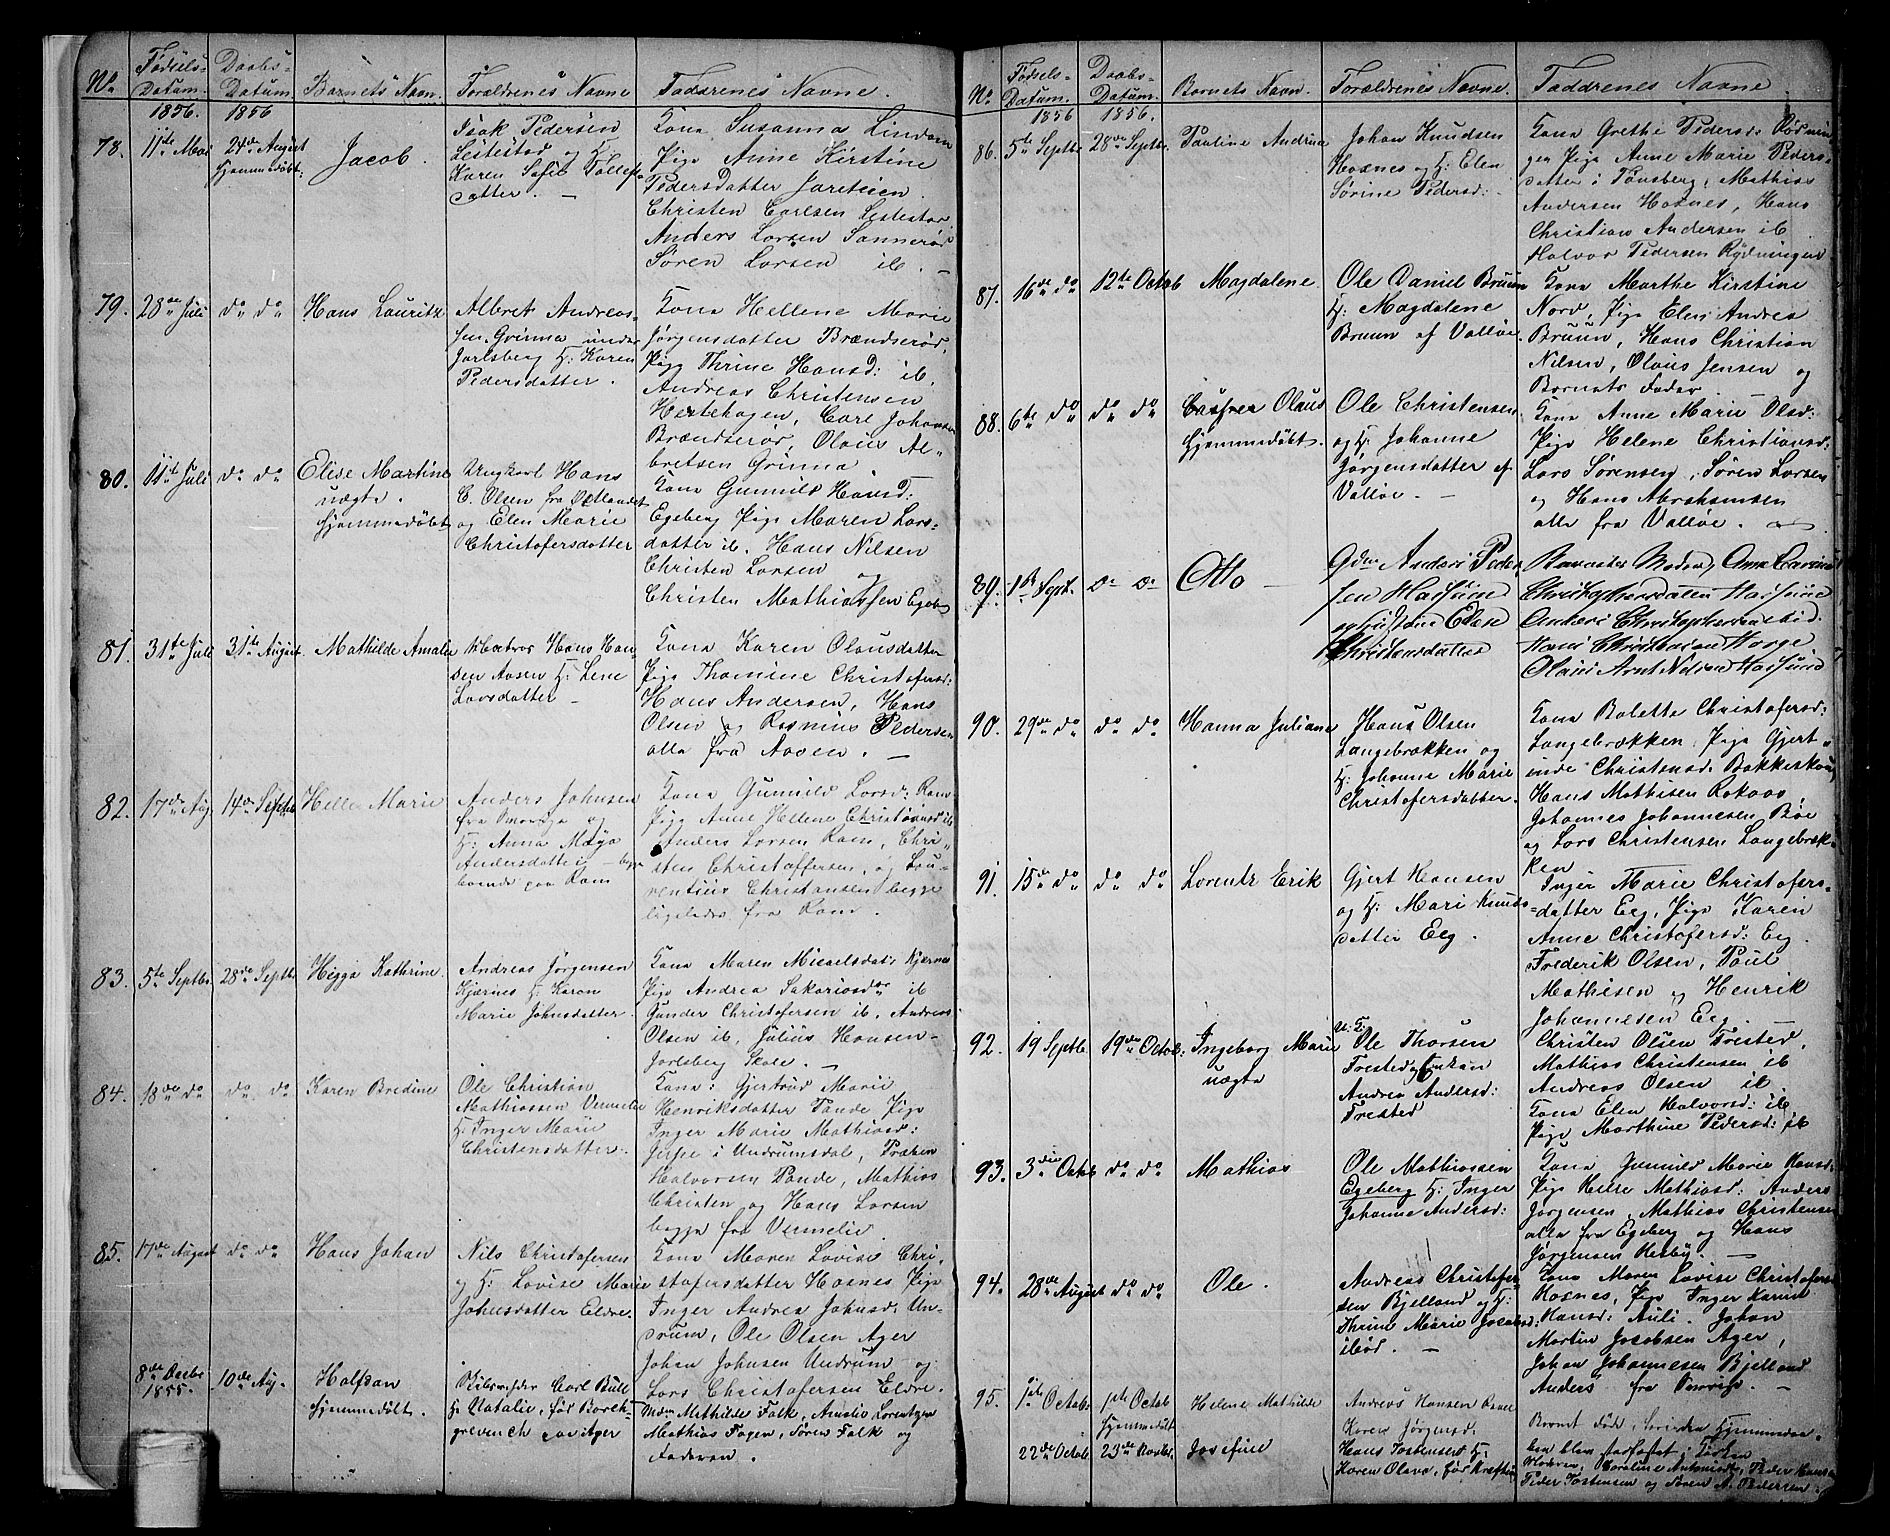 No. Fødsels- Datum. Daabs- Datum. Barnets Navn. Forældrenes Navne Faddrenes Navne.
1856. 1856
78. 11te Mai 24de August hjemmedøbt. Jacob.
Isak Pedersen
Lestestad og H:
Karen Sofie Tollefs-
datter. —
Kona Susanna Lindom
Pige Anne Kirstine
Pedersdatter Jarteien
Christen Carlsen Lestestad
Anders Larsen Sannerød
Søren Larsen ib. —
79. 28de Juli do do Hans Lauritz
Albret Andreas-
sen Grinna under
Jarlsberg H: Karen
Pedersdatter.
Kona Hellene Marie
Jørgensdatter Brændserød,
Pige Thrine Hansd: ib.
Andreas Christensen
Hertehagen, Carl Johansen
Brændserød, Olaus Al-
bretsen Grinna.
80. 11te Juli do do Elise Martine
uægte.
hjemmedøbt
Ungkarl Hans
C. Olsen fra Østlandet
og Elen Marie
Christofersdatter
Kona Gunnild Hansd:
Egeberg Pige Maren Lars-
datter ib. Hans Nilsen
Christen Larsen og
Christen Mathiassen Egeb
81. 31te Juli 31te August. Mathilde Amalie
Matros Hans Han-
sen Aasen H: Lene
Larsdatter —
Kona Karen Olausdatter
Pige Thomine Christofersd:
Hans Andersen, Hans
Olsen og Rasmus Pedersen
alle fra Aasen. —
82. 17de Aug. 14de Septbr Helle Marie
Anders Johnsen
fra og
H: Anna Maja
Andersdatter — begge
boende paa Ram
Kona Gunnild Larsd: Ram
Pige Anne Helene Christiansd ib
Anders Larsen Ram, Chri-
sten Christoffersen, og Lau-
rentius Christansen begge
ligeledes fra Ram.
83. 5te Septbr. 28de Septbr Higga Kathrine.
Andreas Jørgensen
Kjærnes H: Karen
Marie Johnsdatter.
Kona Maren Micaelsdat: Kjærnes
Pige Andrea Sakariasd ib
Gunder Christofersen ib. Andreas
Olsen ib, Julius Hansen —
Jarlsberg Skole. —
84. 18de do do do Karen Bredine
Ole Christian
Mathiassen Vermelie
H: Inger Marie
Christensdatter.
Kona: Gjertrud Marie
Henriksdatter Pande Pige
Inger Marie Mathiasd:
i Undrumsdal,
Halvorsen Pande, Mathias
Christen og Hans Larsen
begge fra Vermelie.
85. 17de August do do Hans Johan
Nils Christofersen
og H: Lovise Marie
Johnsdatter Eldre.
Kona Maren Lovise Chri-
stofersdatter Hasnes Pige
Inger Andrea Johnsd: Un-
drum, Ole Olsen Ager
Johan Johnsen Undrum og
Lars Christofersen Eldre.
8de Decbr 1855. 10de Aug. Halfdan
hjemmedøbt.
Carl Bull
H: Natalie, før Borch-
grevench
Mathilde Falk, Amalie Lorentzen
Mathias Fagen, Søren Falk og
Faderen.
No. Fødsels- Datum. Daabs- Datum. Barnets Navn. Forældrenes Navne. Faddrenes Navne.
1856 1856.
86. 5te Septbr 28de Septbr. Pauline Andrine
Johan Knudsen
Hoxnes og H: Elen
Sørine Pedersd:
Kona Grethe Pedersd: Rødnin
gen Pige Anne Marie Peders-
datter i Tønsberg, Mathias
Andersen Hasnes, Hans
Christian Andersen ib.
Halvor Pedersen Rydningen
87. 16de do 12te Octob Magdalene
Ole Daniel Bruun
H: Magdalene
Bruun af Valløe.
Kona Marthe Kirstine
Nord, Pige Elen Andrea
Bruun, Hans Christian
Nilsen, Olaus Jensen og
Barnets Fader.
88. 6te do do do Casper Olaus
hjemmedøbt.
Ole Christensen
og H: Johanne
Jørgensdatter af
Valløe. —
Kona Anne Marie Olsd:
Pige Helene Christiansd:
Lars Sørensen, Søren Larsen
og Hans Abrahamsen
alle fra Valløe.
89. 1st Sept. do do Otto —
Anders Peder
sen Haslund
og Hustrue Elen
Christensdatter
Barnets Moder, Anne Carine
Christophersdatter Haslund
Anders Christophersen ibid.
Hans Christiansen Horge
Olaus Arnt Nilsen Haslund
90. 29de do do do Hanna Juliane
Hans Olsen
Langebrækken og
H: Johanne Marie
Christofersdatter.
Kona Bolette Christofersd:
Langebrækken. Pige Gjert-
inde Christensd: Bakkeskou
Hans Mathisen Rokaas
Johannes Johannesen Bøe
og Lars Christensen Langebræk-
ken
91. 15de do do do Lorentz Erik
Gjert Hansen
og H: Mari Knuds-
datter Eeg.
Inger Marie Christofers-
datter Eeg, Pige Karen
Anne Christofersd: Eeg.
Frederik Olsen, Poul
Mathisen og Henrik
Johannesen Eeg. —
92. 19 Septb. 19de Octob: Ingeborg Marie
uægte
U: F:
Ole Thorsen
Trested
Andrea Andersd:
Trested
Christen Olsen Trested,
Mathias Christensen ib
Andreas Olsen ib.
Kona Elen Halvorsd: ib
Pige Marthine Pedersd: ib
93. 3die Octob do do Mathias
Ole Mathiassen
Egeberg H: Inger
Johanne Andersd:
Kona Gunnild Marie Hansd:
Pige Helre Mathiasd: Anders
Jørgensen, Mathias Christensen
alle fra Egeberg og Hans
Jørgensen Hesby. —
94. 28de August do do Ole.
Andreas Christofer-
sen Bjelland og H:
Thrine Marie Jacobsd:
ibid. —
Kona Maren Lovise Christofersd
Hasnes, Pige Inger Karine
Hansd: Auli. Johan
Martin Jacobsen Ager,
Johan Johannesen Bjelland
Anders fra —
95. 1ste Octob. 1ste Octob hjemmedøbt Helene Mathilde
Andreas Hansen
Karen Jørgensd:
22de Octob. 23de Josefine
Hans Tostensen H:
Karen Olava, før
Moderen, Caroline Antonisd:, Peder Hans
Peder Tostensen og Søren A. Pedersen